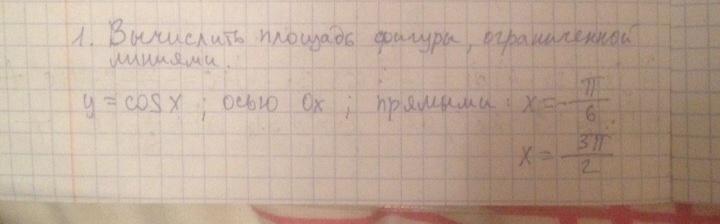 1. Вычислить площадь фигуры, ограниченной
линиями.
y = cos x ; осью Ox ; прямыми: x = π/6;
x = 3π/2